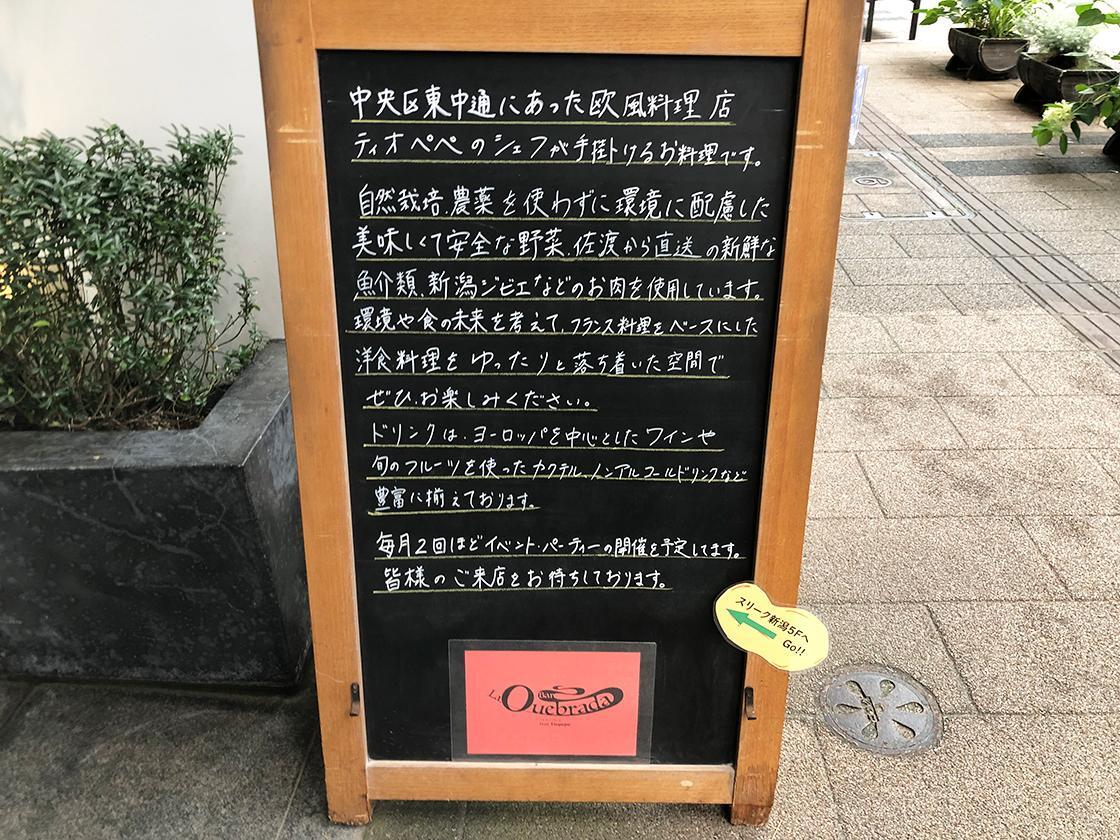 中央区東中通にあった欧風料理店
ティオペペのシェフが手掛けるお料理です。
自然栽培、農薬を使わずに環境に配慮した
美味しくて安全な野菜、佐渡から直送の新鮮な
魚介類、新潟ジビエなどのお肉を使用しています。
環境や食の未来を考えて、フランス料理をベースにした
洋食料理をゆったりと落ち着いた空間で
ぜひ、お楽しみください。
ドリンクは、ヨーロッパを中心としたワインや
旬のフルーツを使ったカクテル、ノンアルコールドリンクなど
豊富に揃えております。
毎月2回ほどイベント・パーティーの開催を予定してます。
皆様のご来店をお待ちしております。
スリーク新潟5Fへ
Go!!
La Bar Quebrada